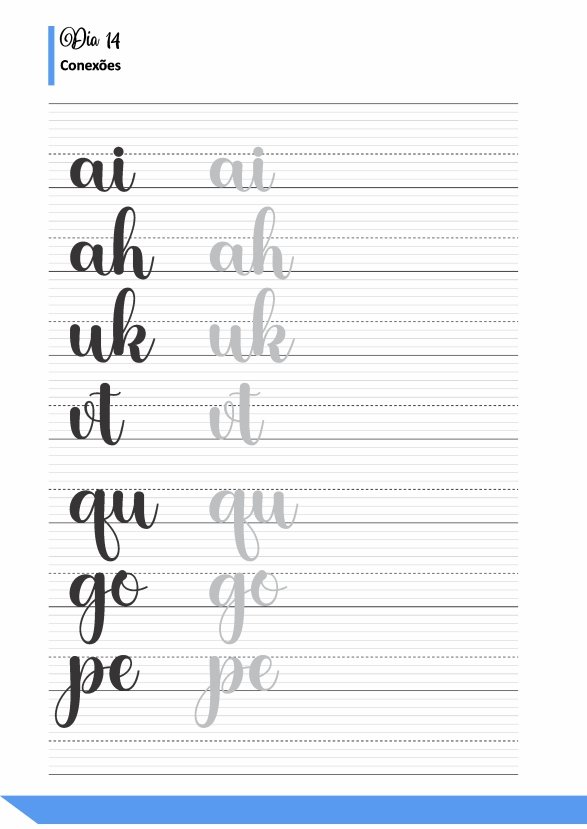 Dia 14
Conexões
ai ai
ah ah
uk uk
vt vt
qu qu
go go
pe pe